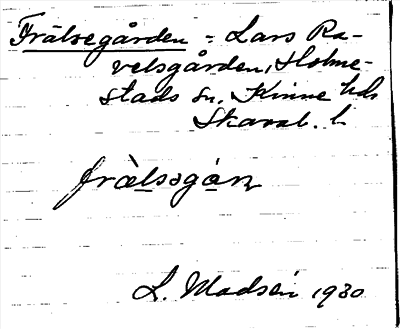 Frälsegården = Lars Ra-
velsgården, Holme-
stads sn. Kinne hds
Skarab. l.
fràlsəgàn
L. Madsén 1930